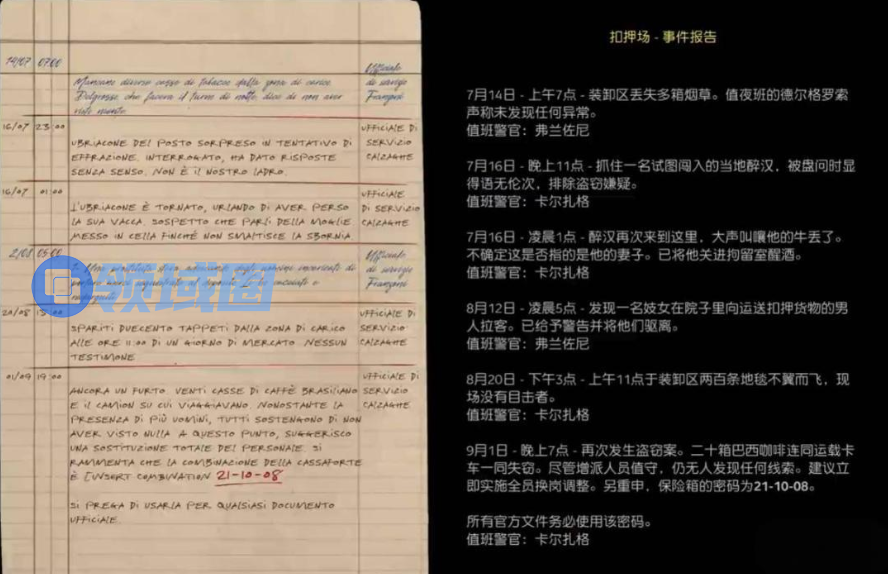 14/07 07:00
Ufficiale di servizio Franzoni
16/07 23:00
UBRIACONE DEL POSTO SORPRESO IN TENTATIVO DI
EFFRAZIONE. INTERROGATO, HA DATO RISPOSTE
SENZA SENSO. NON È IL NOSTRO LADRO.
UFFICIALE DI
SERVIZIO
CALZAGHE
16/07 01:00
L'UBRIACONE È TORNATO, URLANDO DI AVER PERSO
LA SUA VACCA. SOSPETTO CHE PARLI DELLA MOGLIE
MESSO IN CELLA FINCHÉ NON SMALTISCE LA SBORNIA
UFFICIALE
DI SERVIZIO
CALZAGHE
05:00
Ufficiale
di servizio
Franzoni
领域圈
20/08
SPARITI DUECENTO TAPPETI DALLA ZONA DI CARICO
ALLE ORE 11:00 DI UN GIORNO DI MERCATO NESSUN
TESTIMONE
UFFICIALE DI
SERVIZIO
CALZAGHE
01/09 19:00
ANCORA UN FURTO. VENTI CASSE DI CAFFÈ BRASILIANO
E IL CAMION SU CUI VIAGGIAVANO. NONOSTANTE LA
PRESENZA DI PIÙ UOMINI, TUTTI SOSTENGONO DI NON
AVER VISTO NULLA A QUESTO PUNTO, SUGGERISCO
UNA SOSTITUZIONE TOTALE DEL PERSONALE. SI
RAMMENTA CHE LA COMBINAZIONE DELLA CASSAFORTE
È [INSERT COMBINATION 21-10-08
SI PREGA DI USARLA PER QUALSIASI DOCUMENTO
UFFICIALE
UFFICIALE DI
SERVIZIO
CALZAGHE
扣押场 - 事件报告
7月14日 - 上午7点 - 装卸区丢失多箱烟草。值夜班的德尔格罗索
声称未发现任何异常。
值班警官：弗兰佐尼
7月16日 - 晚上11点 - 抓住一名试图闯入的当地醉汉，被盘问时显
得语无伦次，排除盗窃嫌疑。
值班警官：卡尔扎格
7月16日 - 凌晨1点 - 醉汉再次来到这里，大声叫嚷他的牛丢了。
不确定这是否指的是他的妻子。已将他关进拘留室醒酒。
值班警官：卡尔扎格
8月12日 - 凌晨5点 - 发现一名妓女在院子里向运送扣押货物的男
人拉客。已给予警告并将他们驱离。
值班警官：弗兰佐尼
8月20日 - 下午3点 - 上午11点于装卸区两百条地毯不翼而飞，现
场没有目击者。
值班警官：卡尔扎格
9月1日 - 晚上7点 - 再次发生盗窃案。二十箱巴西咖啡连同运载卡
车一同失窃。尽管增派人员值守，仍无人发现任何线索。建议立
即实施全员换岗调整。另重申，保险箱的密码为21-10-08。
所有官方文件务必使用该密码。
值班警官：卡尔扎格